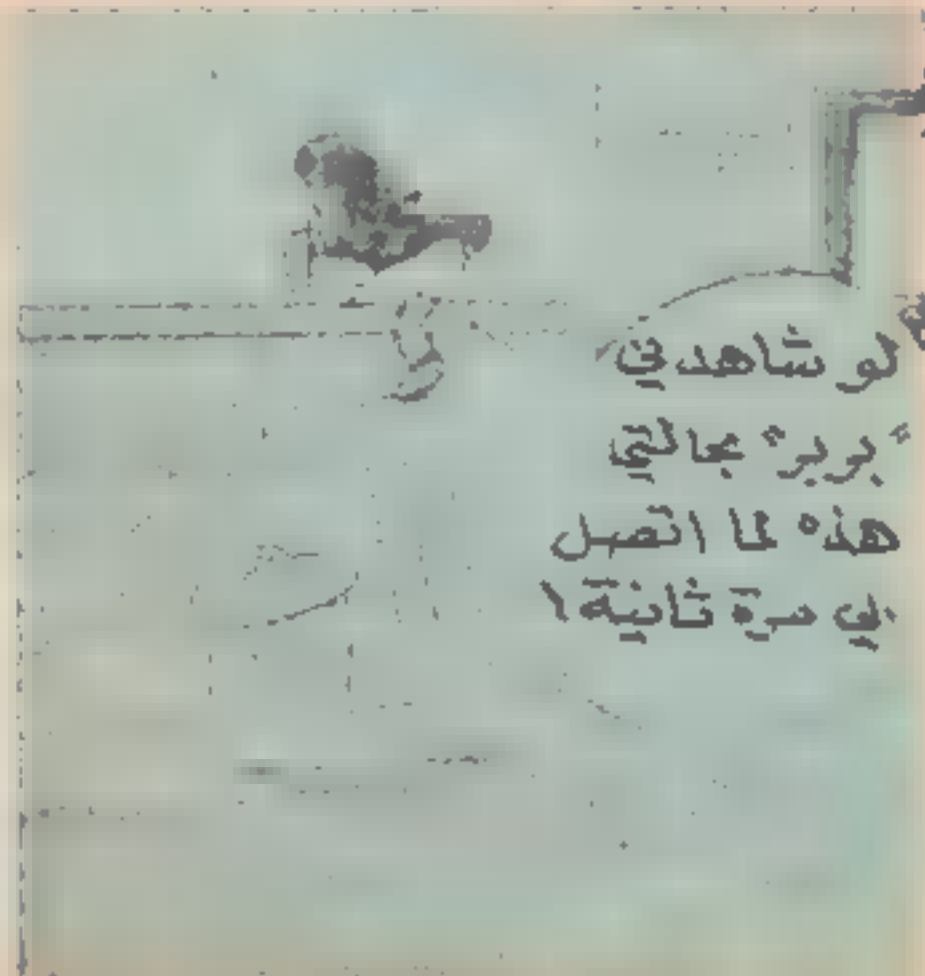 لو شاهدني
"بربر" بحالتي
هذه لما اتصل
بي مرة ثانية!